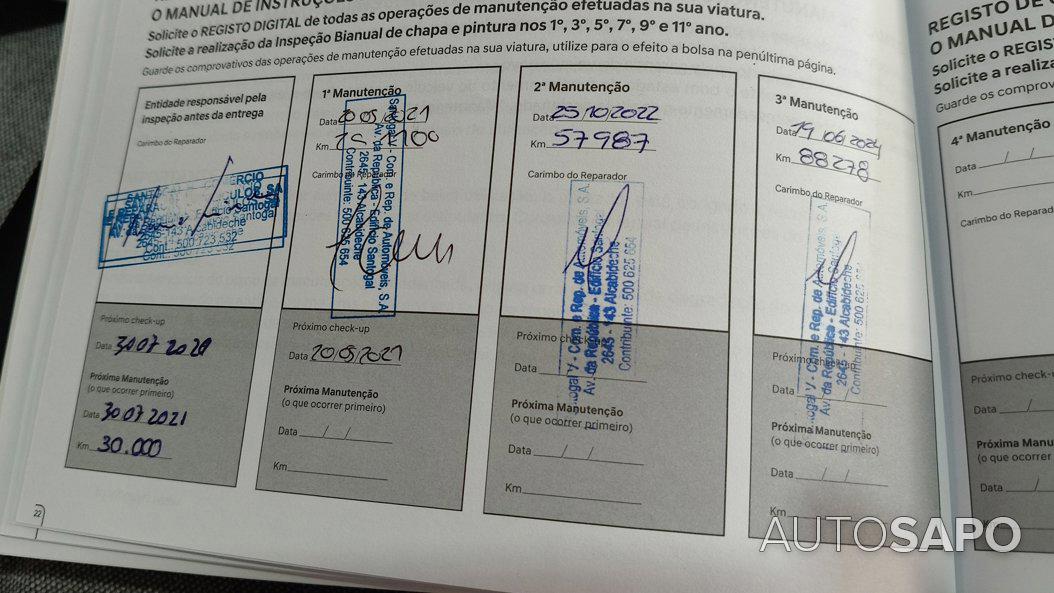 O MANUAL DE INSTRUÇÕ
Solicite o REGISTO DIGITAL de todas as operações de manutenção efetuadas na sua viatura.
Solicite a realização da Inspeção Bianual de chapa e pintura nos 1º, 3º, 5º, 7º, 9º e 11º ano.
Guarde os comprovativos das operações de manutenção efetuadas na sua viatura, utilize para o efeito a bolsa na penúltima página.
Entidade responsável pela
inspeção antes da entrega
Carimbo do Reparador
2645-143 Alcabideche
Cont.: 500 723 532
Próximo check-up
Data 30 07 2020
Próxima Manutenção
(o que ocorrer primeiro)
Data 30 07 2021
Km 30.000
1ª Manutenção
Data 20 05/2021
Km
Carimbo do Reparador
Santogal V - Com. e Rep. de Automóveis, S.A.
Av. da República - Edifício Santogal
2645 - 143 Alcabideche
Contribuinte: 500 625 654
Próximo check-up
Data 20/05/2021
Próxima Manutenção
(o que ocorrer primeiro)
Data / /
Km
2ª Manutenção
Data 25/10/2022
Km 57987
Carimbo do Reparador
ogal V - Com. e Rep. de Automóveis, S.A.
Av. da República - Edifício Santogal
2645 - 143 Alcabideche
Contribuinte: 500 625 654
Próximo check-up
Data
Próxima Manutenção
(o que ocorrer primeiro)
Data / /
Km
3ª Manutenção
Data 19/06/2024
Km 88278
Carimbo do Reparador
ogal V - Com. e Rep. de Automóveis, S.A.
Av. da República - Edifício Santogal
2645 - 143 Alcabideche
Contribuinte: 500 625 654
Próximo check-up
Data / /
Próxima Manutenção
(o que ocorrer primeiro)
Data / /
Km
22
REGISTO DE
O MANUAL D
Solicite o REGIS
Solicite a realiza
Guarde os comprov
4ª Manutenção
Data / /
Km
Carimbo do Reparado
Próximo check-
Data / /
Próxima Manu
(o que ocorrer
Data /
AUTOSAPO